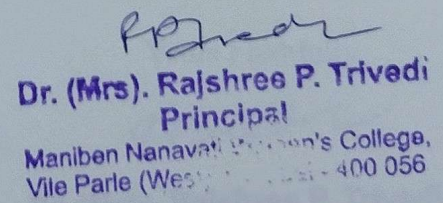 Dr. (Mrs). Rajshree P. Trivedi
Principal
Maniben Nanavati College,
Vile Parle (West 400 056